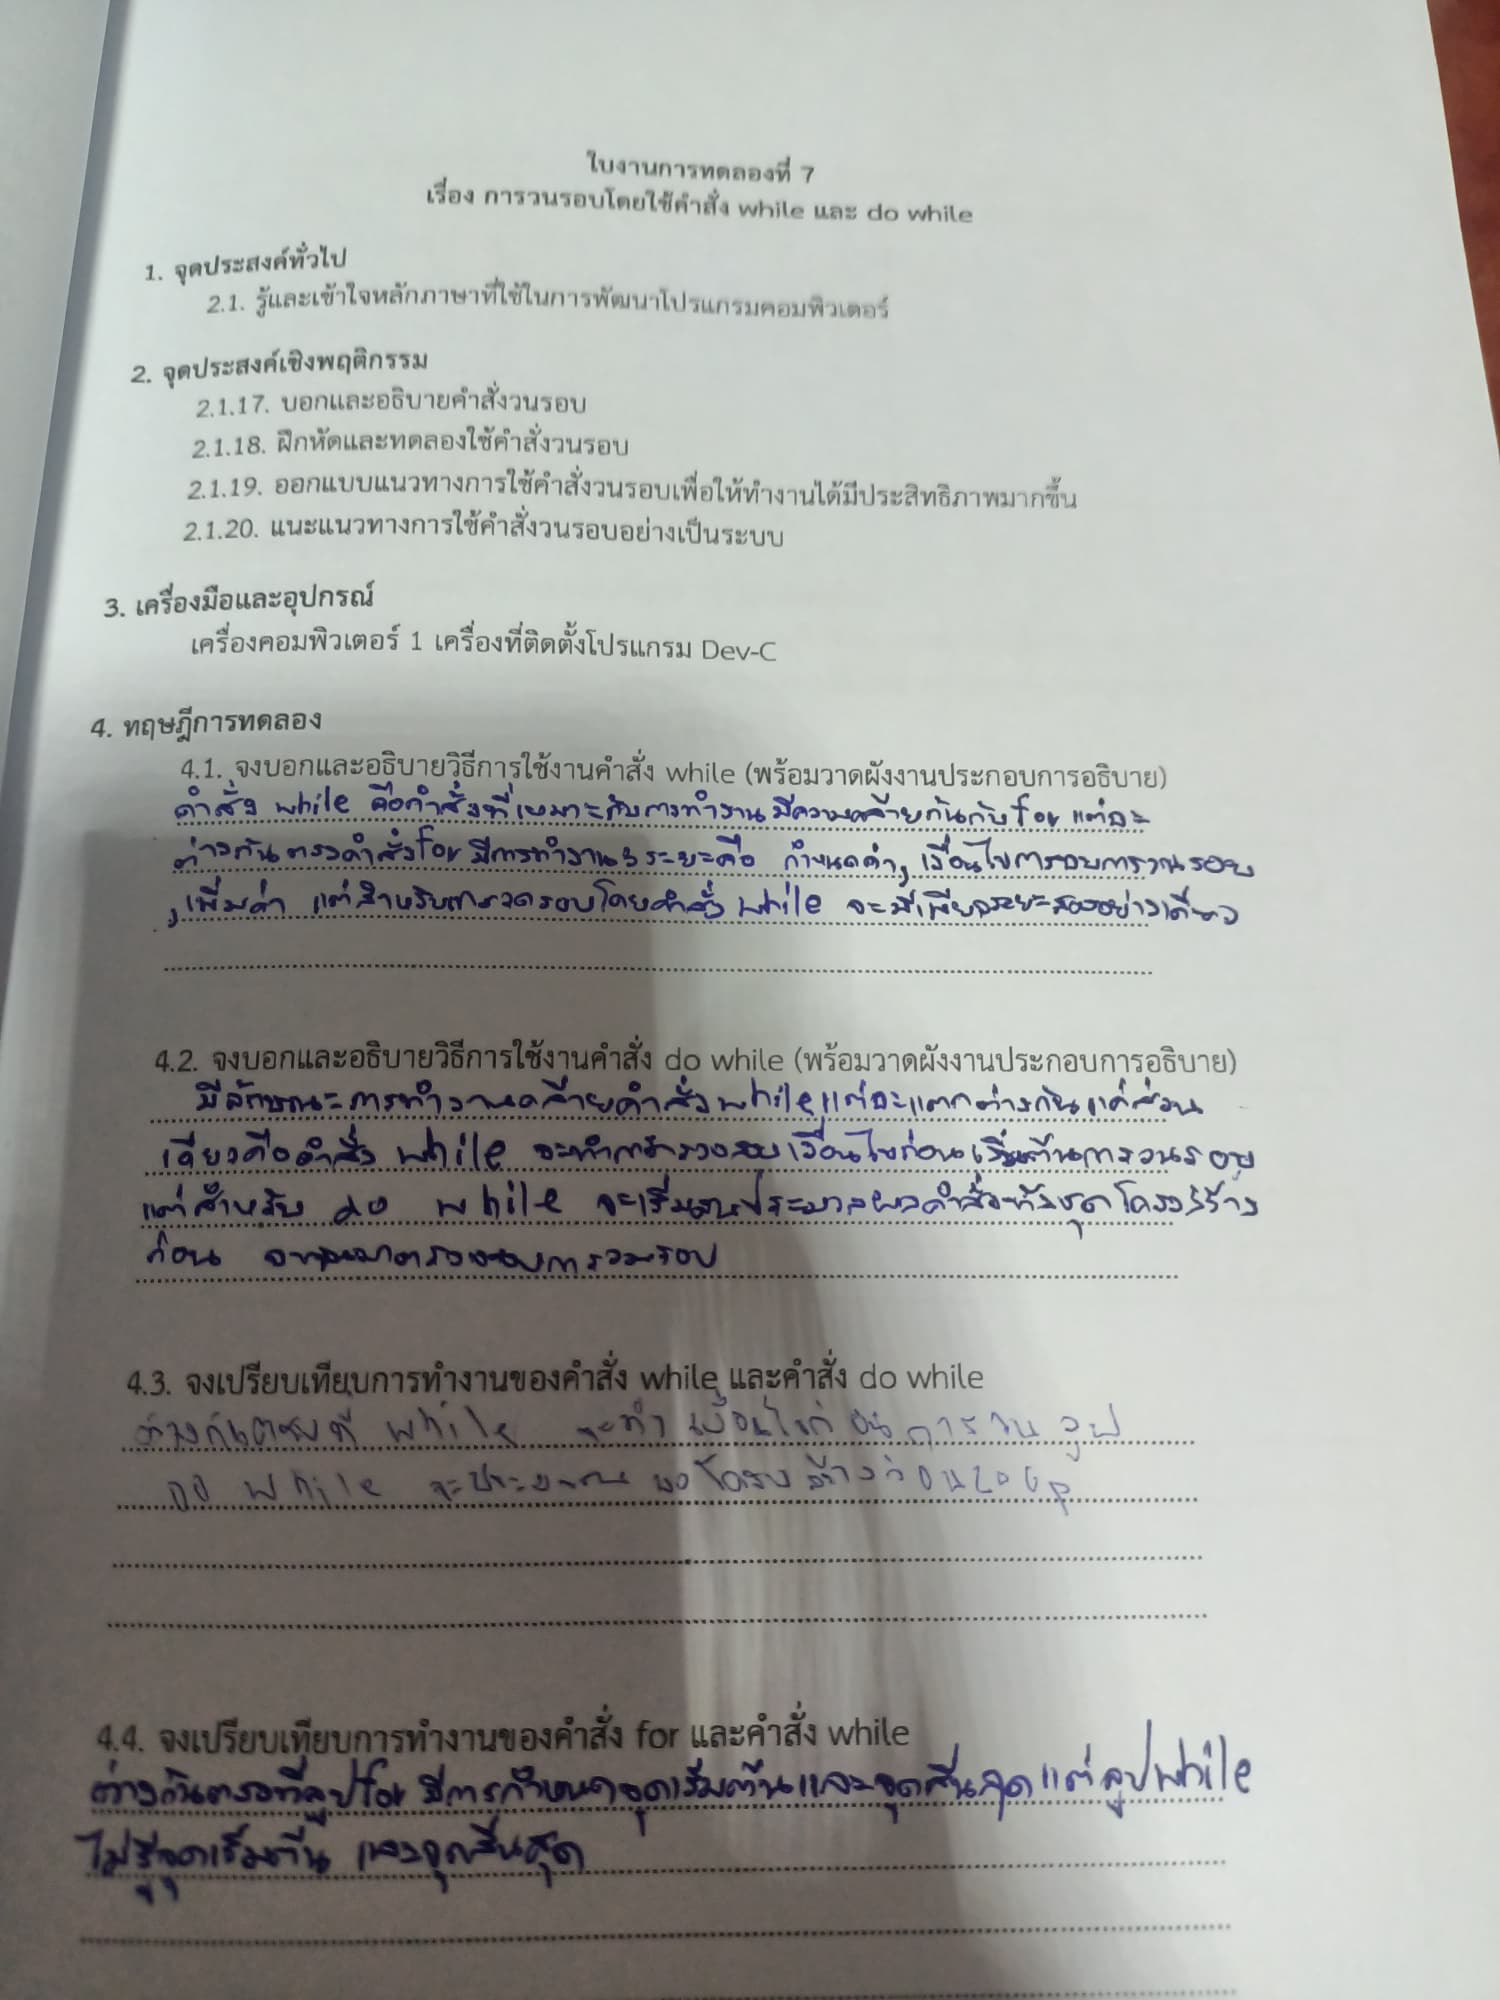 ใบงานการทดลองที่ 7
เรื่อง การวนรอบโดยใช้คำสั่ง while และ do while
1. จุดประสงค์ทั่วไป
2.1. รู้และเข้าใจหลักภาษาที่ใช้ในการพัฒนาโปรแกรมคอมพิวเตอร์
2. จุดประสงค์เชิงพฤติกรรม
2.1.17. บอกและอธิบายคำสั่งวนรอบ
2.1.18. ฝึกหัดและทดลองใช้คำสั่งวนรอบ
2.1.19. ออกแบบแนวทางการใช้คำสั่งวนรอบเพื่อให้ทำงานได้มีประสิทธิภาพมากขึ้น
2.1.20. แนะแนวทางการใช้คำสั่งวนรอบอย่างเป็นระบบ
3. เครื่องมือและอุปกรณ์
เครื่องคอมพิวเตอร์ 1 เครื่องที่ติดตั้งโปรแกรม Dev-C
4. ทฤษฎีการทดลอง
4.1. จงบอกและอธิบายวิธีการใช้งานคำสั่ง while (พร้อมวาดผังงานประกอบการอธิบาย)
คำสั่ง while คือคำสั่งที่เหมาะกับการทำงานมีความคล้ายกันกับ for แต่จะ
ต่างกันตรงคำสั่ง for มีการทำงาน 3 ระยะคือ กำหนดค่า, เงื่อนไขการวนรอบ
,เพิ่มค่า แต่สำหรับการวนรอบโดยคำสั่ง while จะมีเพียง
4.2. จงบอกและอธิบายวิธีการใช้งานคำสั่ง do while (พร้อมวาดผังงานประกอบการอธิบาย)
มีลักษณะการทำงานคล้ายคำสั่ง while แต่จะแตกต่างกันแค่ส่วน
เดียวคือคำสั่ง while จะทำการตรวจสอบเงื่อนไขก่อนเริ่มต้นการวนรอบ
แต่สำหรับ do while จะเริ่มประมวลผลคำสั่งทั้งชุดโครงสร้าง
ก่อน การวนรอบ
4.3. จงเปรียบเทียบการทำงานของคำสั่ง while และคำสั่ง do while
ต่างกันตรงที่ while จะทำเงื่อนไขก่อนการวนลูป
do while จะ โครงสร้างก่อน loop
4.4. จงเปรียบเทียบการทำงานของคำสั่ง for และคำสั่ง while
ต่างกันตรงที่ลูป for มีการกำหนดจุดเริ่มต้นและจุดสิ้นสุด แต่ลูป while
ไม่รู้จุดเริ่มต้น และจุดสิ้นสุด